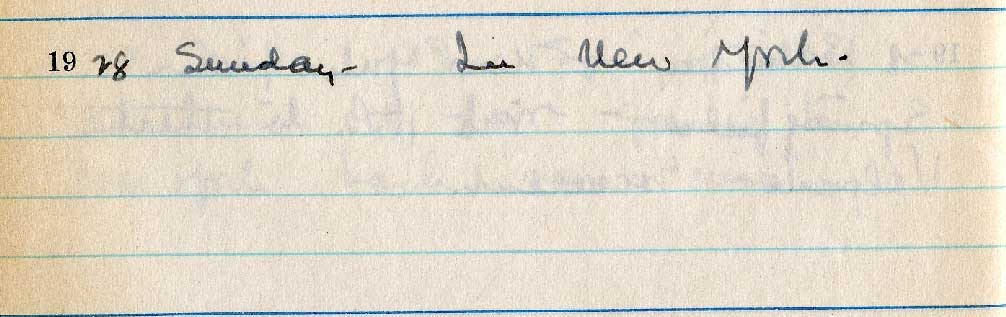 1928 Sunday - In New York.